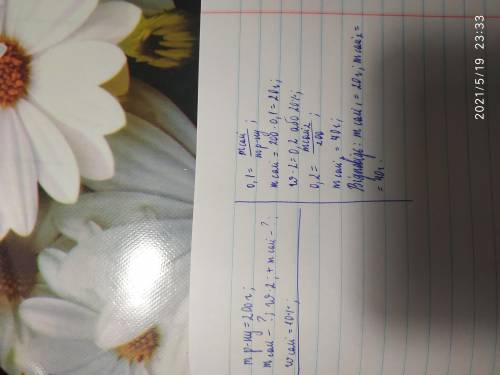 m р-ну = 200 г;
m солі - ?; w·2; + m солі - ?;
w солі = 10%;
0,1 = m солі / m р-ну;
m солі = 200·0,1 = 20 г;
w·2 = 0,2 або 20%;
0,2 = m солі2 / 200;
m солі2 = 40 г;
Відповідь: m солі1 = 20 г; m солі2 =
= 40 г.
2021/5/19 23:33